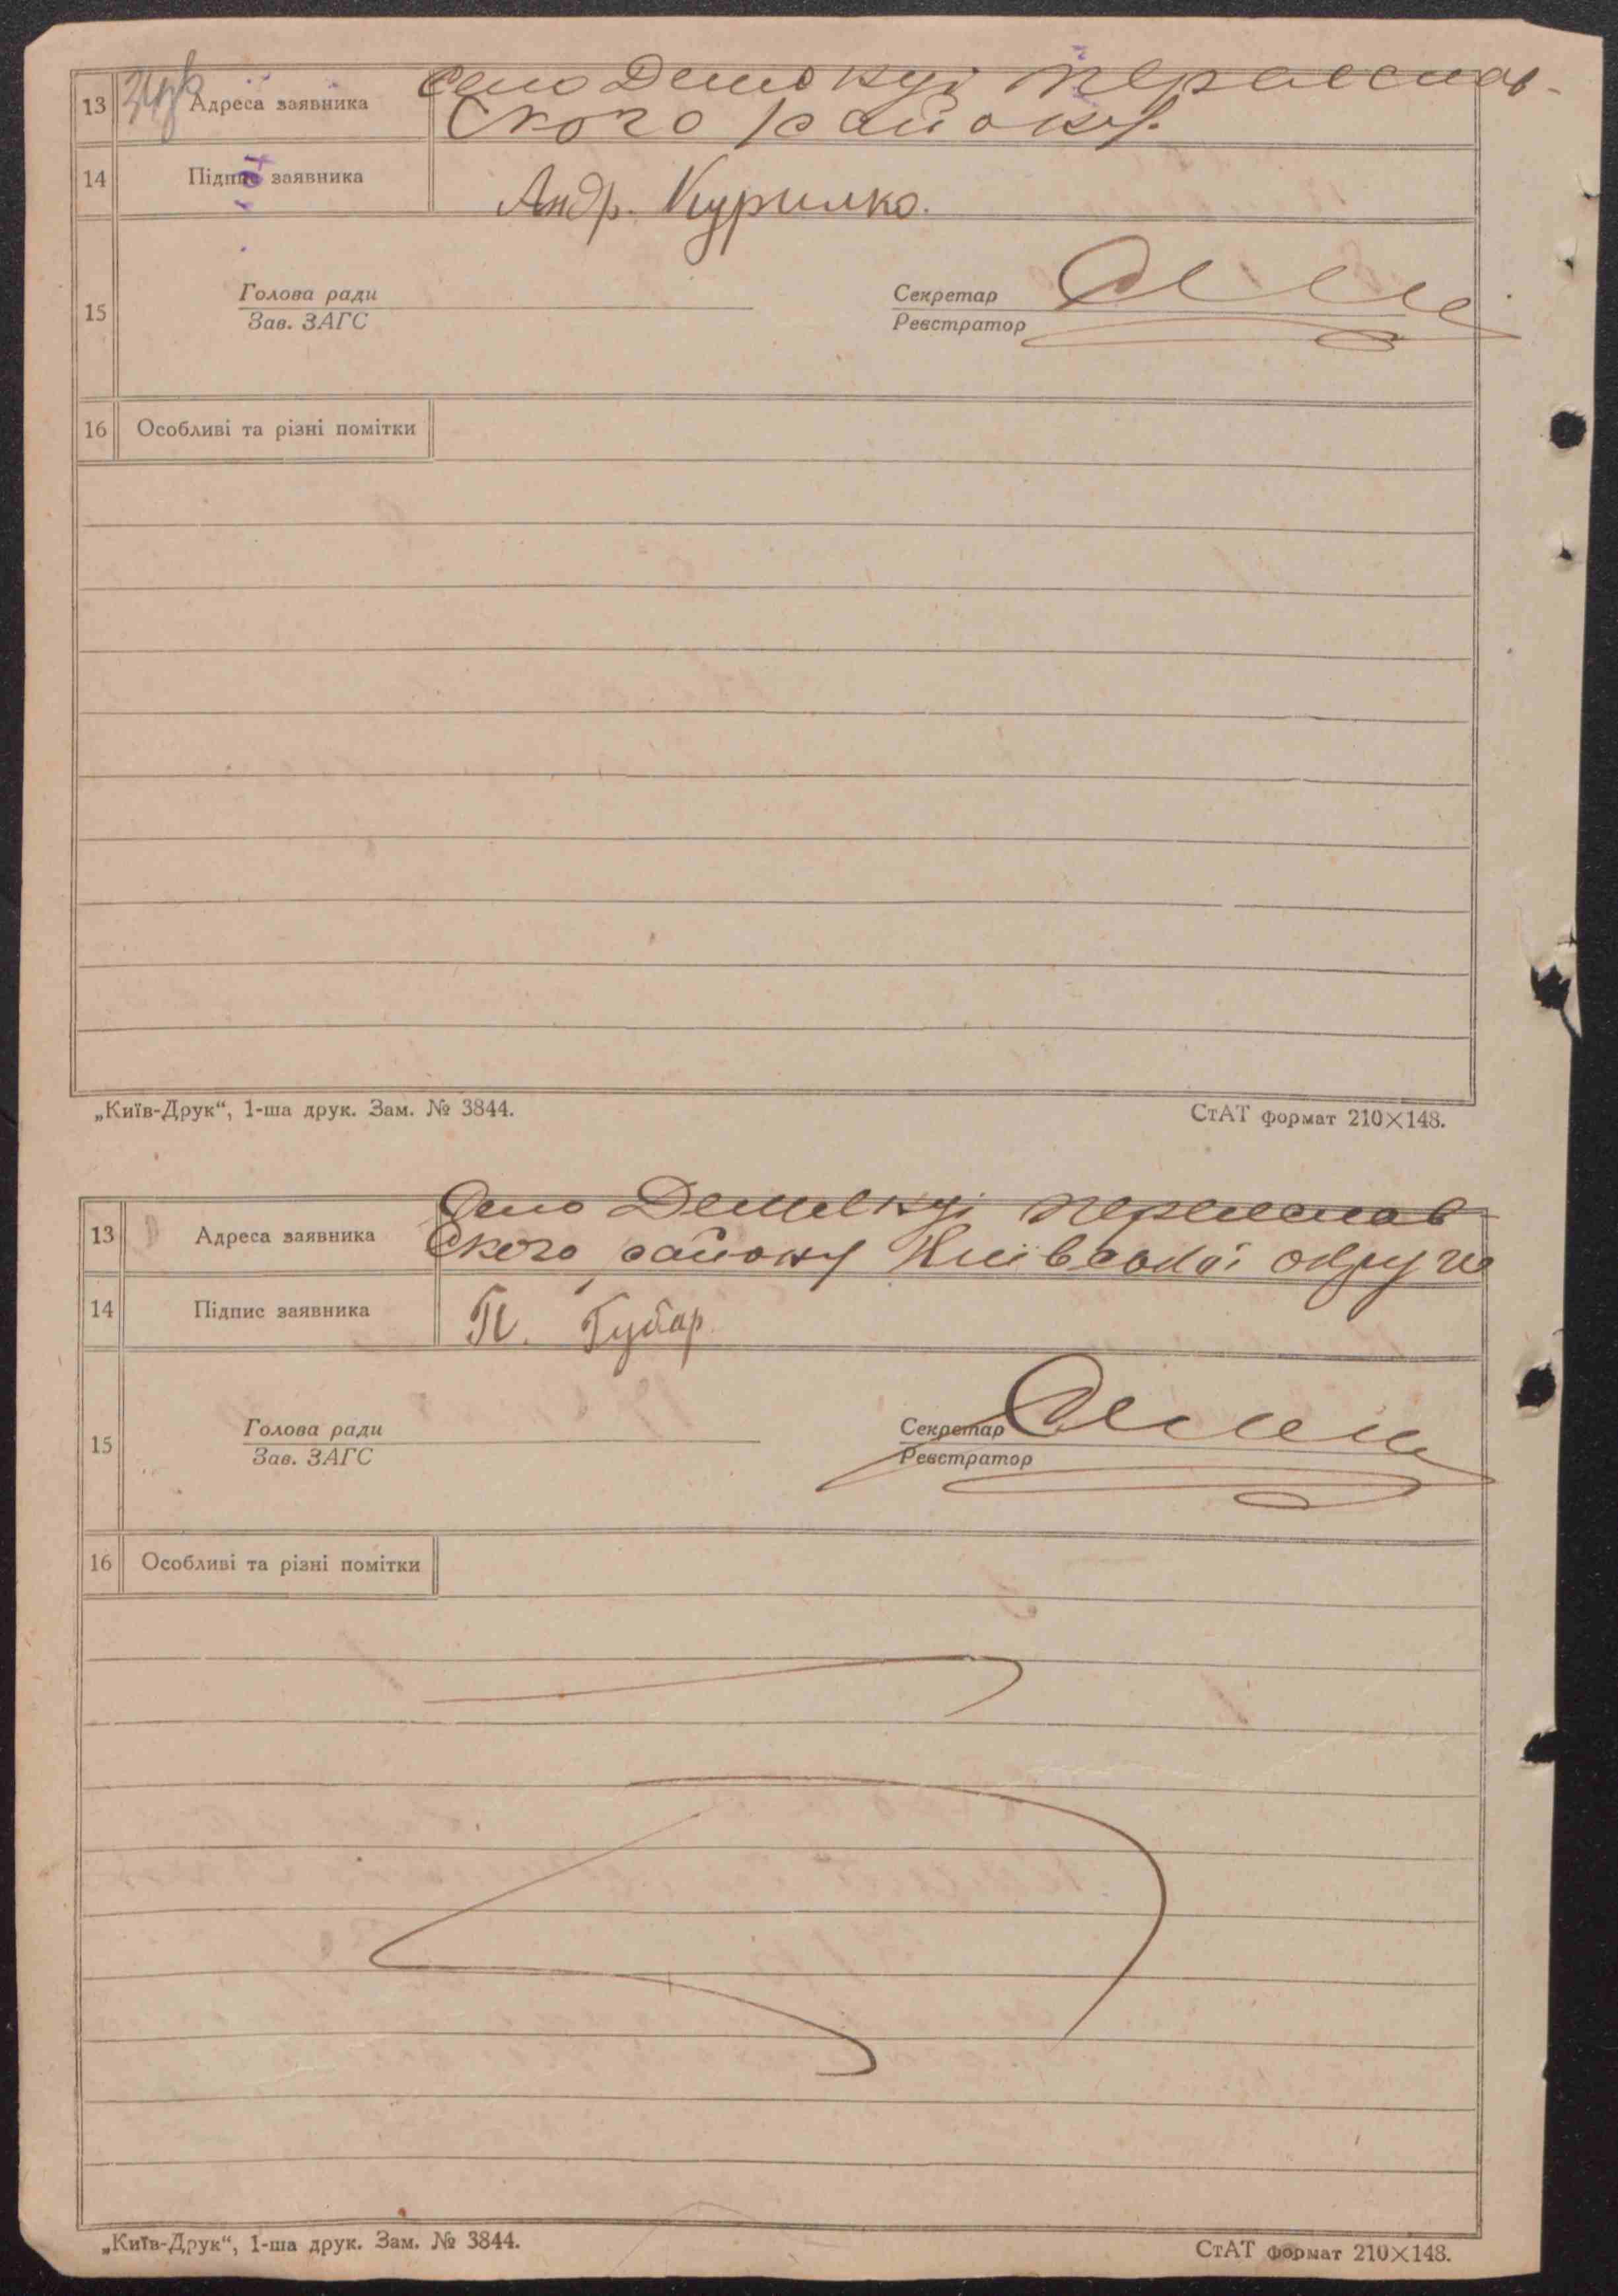 13 Адреса заявника село Демъкуі Переяслав-
ского району.
14 Підпис заявника Андр. Курилко.
Голова ради Секретар
15 Зав. ЗАГС Реєстратор
16 Особливі та різні помітки
„Київ-Друк“, 1-ша друк. Зам. № 3844. СтАТ формат 210×148.
13 Адреса заявника Село Переяслав
ского району Київської округи
14 Підпис заявника П. Губар
Голова ради Секретар
15 Зав. ЗАГС Реєстратор
16 Особливі та різні помітки
„Київ-Друк“, 1-ша друк. Зам. № 3844. СтАТ формат 210×148.